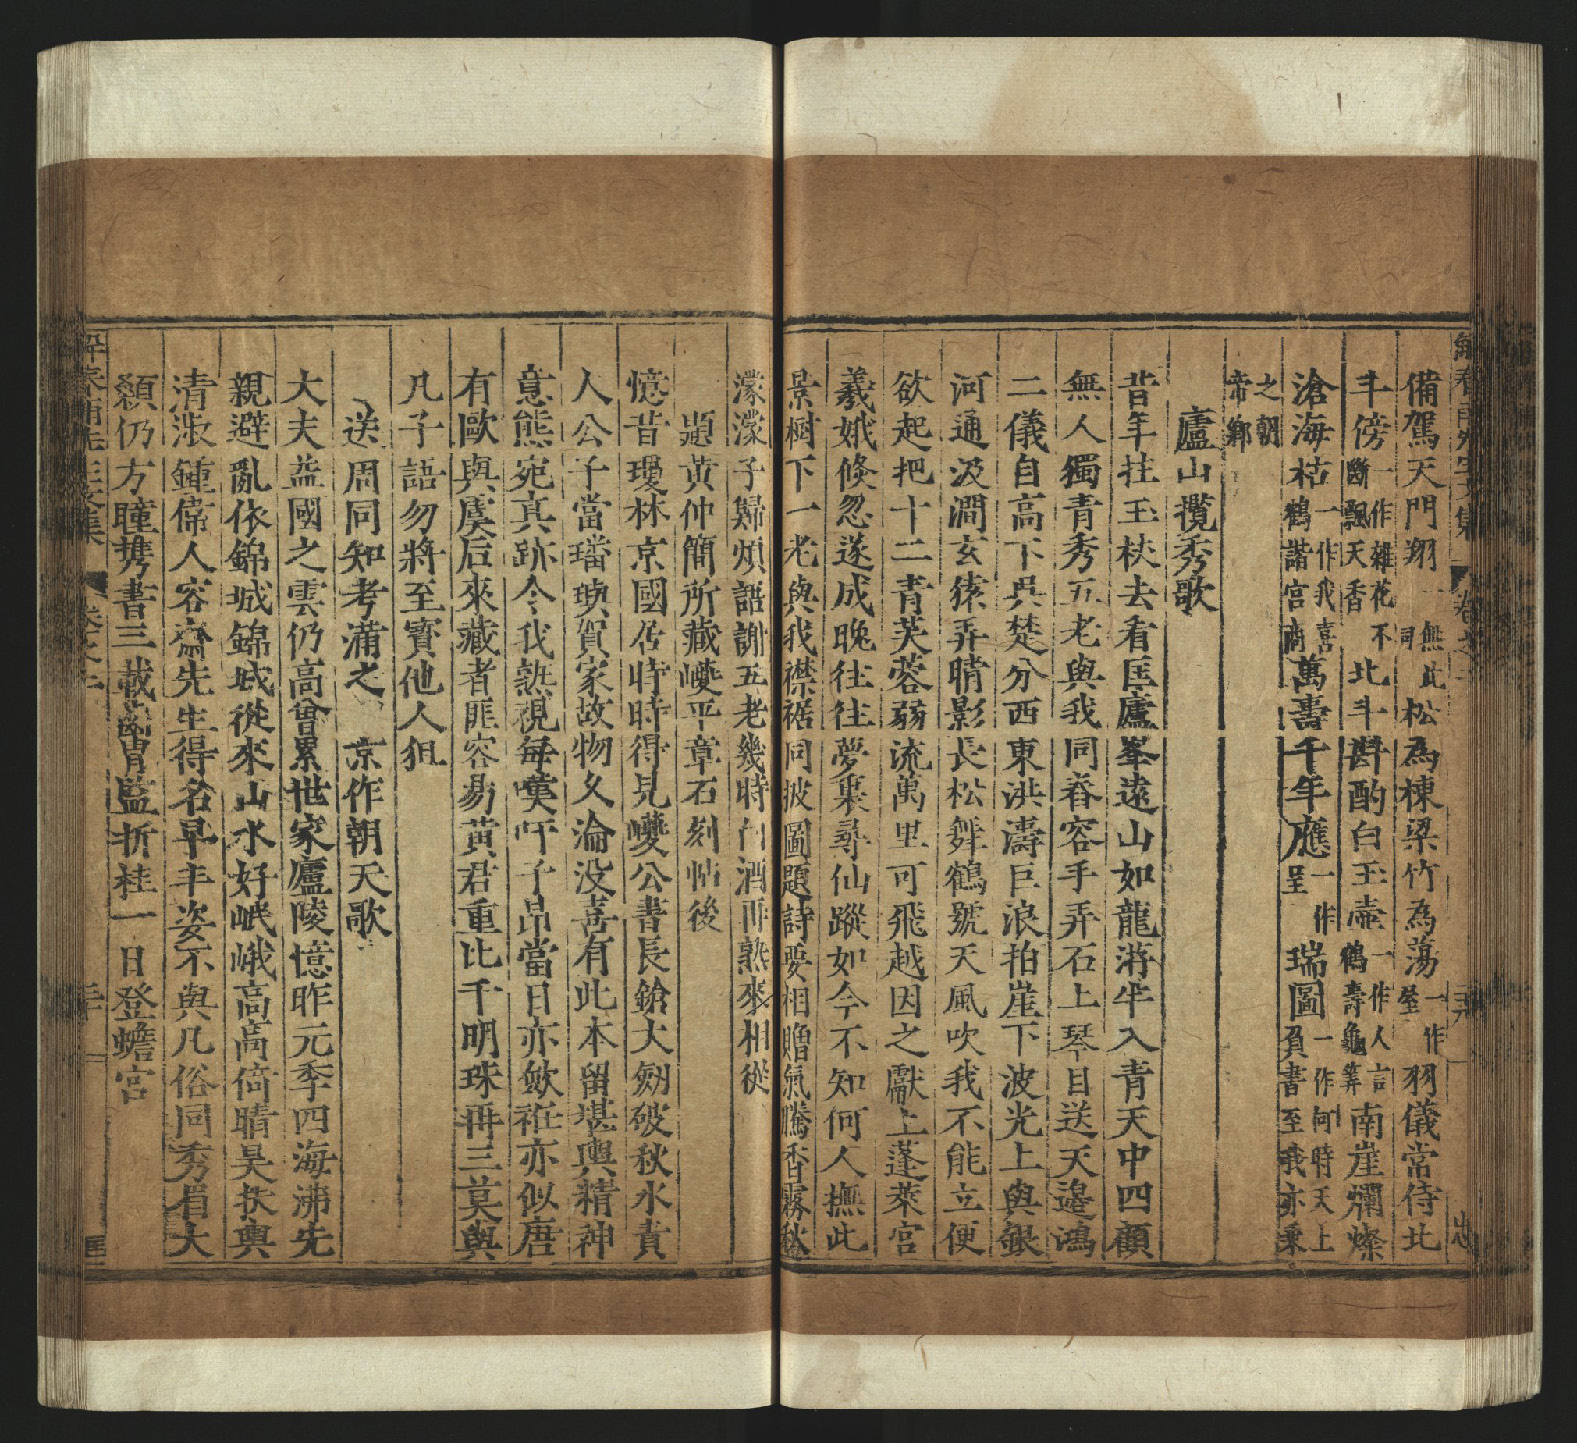 備駕天門翔一無此同松為棟梁竹為蕩一作瑩羽儀常侍北
斗傍一作雜花不斷飄天香北斗斟酌白玉壷一作人言鶴壽龜筭南崖爛燦
滄海枯一作我喜鶴諧宫商萬壽千年應一作呈瑞圖一作何時天上負書至我亦乗
之朝帝鄉
廬山攬秀歌
昔年拄玉杖去看匡廬峯遠山如龍渀牛入青天中四顧
無人獨青秀五老與我同春容手弄石上琴目送天邉鴻
二儀自高下吳楚分西東洪濤巨浪拍崖下波光上與銀
河通汲澗玄猿弄晴影長松舞鶴號天風吹我不能立便
欲起把十二青芙蓉弱流萬里可飛越因之獻上蓬萊宫
羲娥倏忽遂成晚往往夢裊尋仙蹤如今不知何人撫此
景樹下一老與我襟裾同披圖題詩要相贈氣騰香霧秋
濛濛子歸煩語謝五老幾時白酒再熟來相從
題黄仲簡所藏巙平章石刻帖後
憶昔瓊林京國居時時得見巙公書長鎗大劒破秋水貴
人公子當璠璵賀家故物久淪没喜有此本留堪輿精神
意態宛真跡令我熟視每嘆吁子昂當日亦斂袵亦似唐
有歐與虞后來藏者匪容易黄君重比千明珠再三莫與
凡子語勿將至寳他人狙
送周同知考滿之京作朝天歌
大夫益國之雲仍高曾累世家廬陵憶昨元季四海沸先
親避亂依錦城錦城從來山水好岷峨高高倚晴昊扶輿
清淑鍾偉人容齋先生得名早丰姿不與凡俗同秀眉大
顙仍方瞳携書三載齒胄監折桂一日登蟾宫